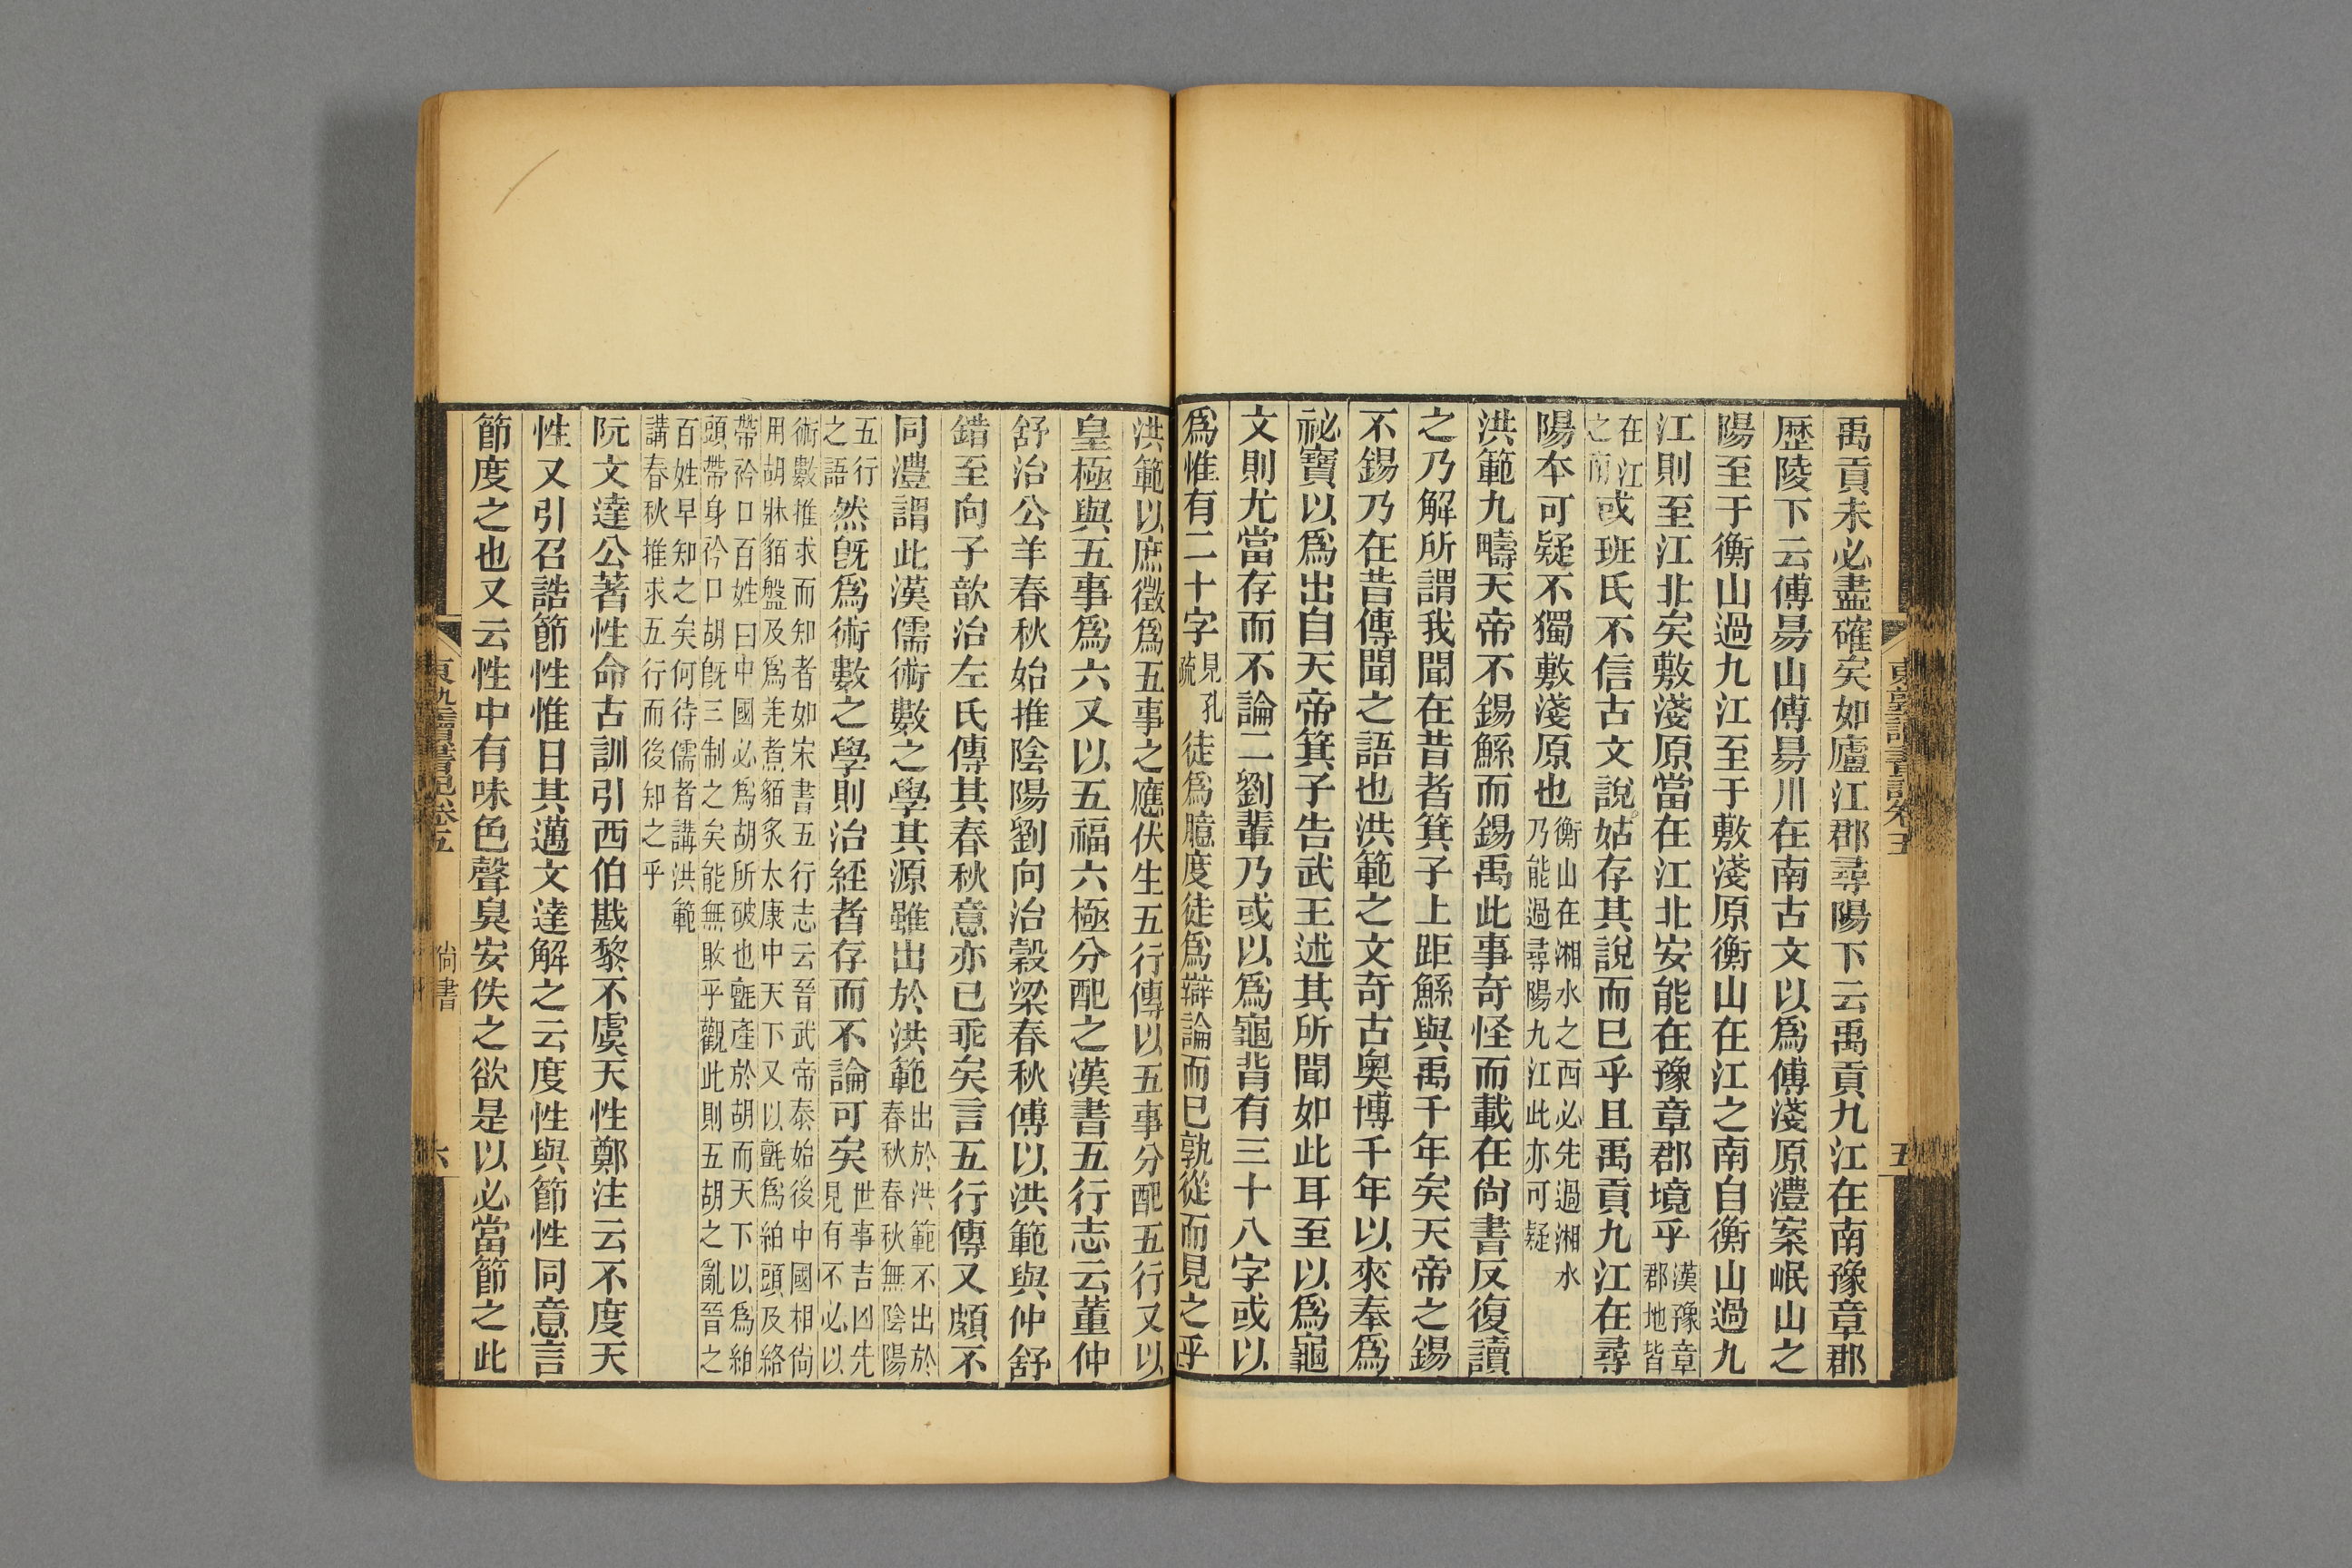 禹貢未必盡確矣如廬江郡尋陽下云禹貢九江在南豫章郡
歴陵下云傅昜山傅昜川在南古文以爲傅淺原澧案岷山之
陽至于衡山過九江至于敷淺原衡山在江之南自衡山過九
江則至江北矣敷淺原當在江北安能在豫章郡境乎漢豫章郡地皆
在江之南或班氏不信古文說姑存其說而已乎且禹貢九江在尋
陽本可疑不獨敷淺原也衡山在湘水之西必先過湘水乃能過尋陽九江此亦可疑
洪範九疇天帝不錫鯀而錫禹此事奇怪而載在尙書反復讀
之乃解所謂我聞在昔者箕子上距鯀與禹千年矣天帝之錫
不錫乃在昔傳聞之語也洪範之文奇古奧博千年以來奉爲
祕寶以爲出自天帝箕子告武王述其所聞如此耳至以爲龜
文則尤當存而不論二劉輩乃或以爲龜背有三十八字或以
爲惟有二十字見孔疏徒爲臆度徒爲辯論而已孰從而見之乎
東塾讀書記卷五
五
洪範以庶徵爲五事之應伏生五行傳以五事分配五行又以
皇極與五事爲六又以五福六極分配之漢書五行志云董仲
舒治公羊春秋始推陰陽劉向治穀梁春秋傅以洪範與仲舒
錯至向子歆治左氏傳其春秋意亦已乖矣言五行傳又頗不
同澧謂此漢儒術數之學其源雖出於洪範出於洪範不出於春秋春秋無陰陽
五行之語然旣爲術數之學則治經者存而不論可矣世事吉凶先見有不必以
術數推求而知者如宋書五行志云晉武帝泰始後中國相尙
用胡牀貊盤及爲羌煮貊炙太康中天下又以氈爲絈頭及絡
帶衿口百姓曰中國必爲胡所破也氈產於胡而天下以爲絈
頭帶身衿口胡旣三制之矣能無敗乎觀此則五胡之亂晉之
百姓早知之矣何待儒者講洪範
講春秋推求五行而後知之乎
阮文達公著性命古訓引西伯戡黎不虞天性鄭注云不度天
性又引召誥節性惟日其邁文達解之云度性與節性同意言
節度之也又云性中有味色聲臭安佚之欲是以必當節之此
東塾讀書記卷五
尙書
六